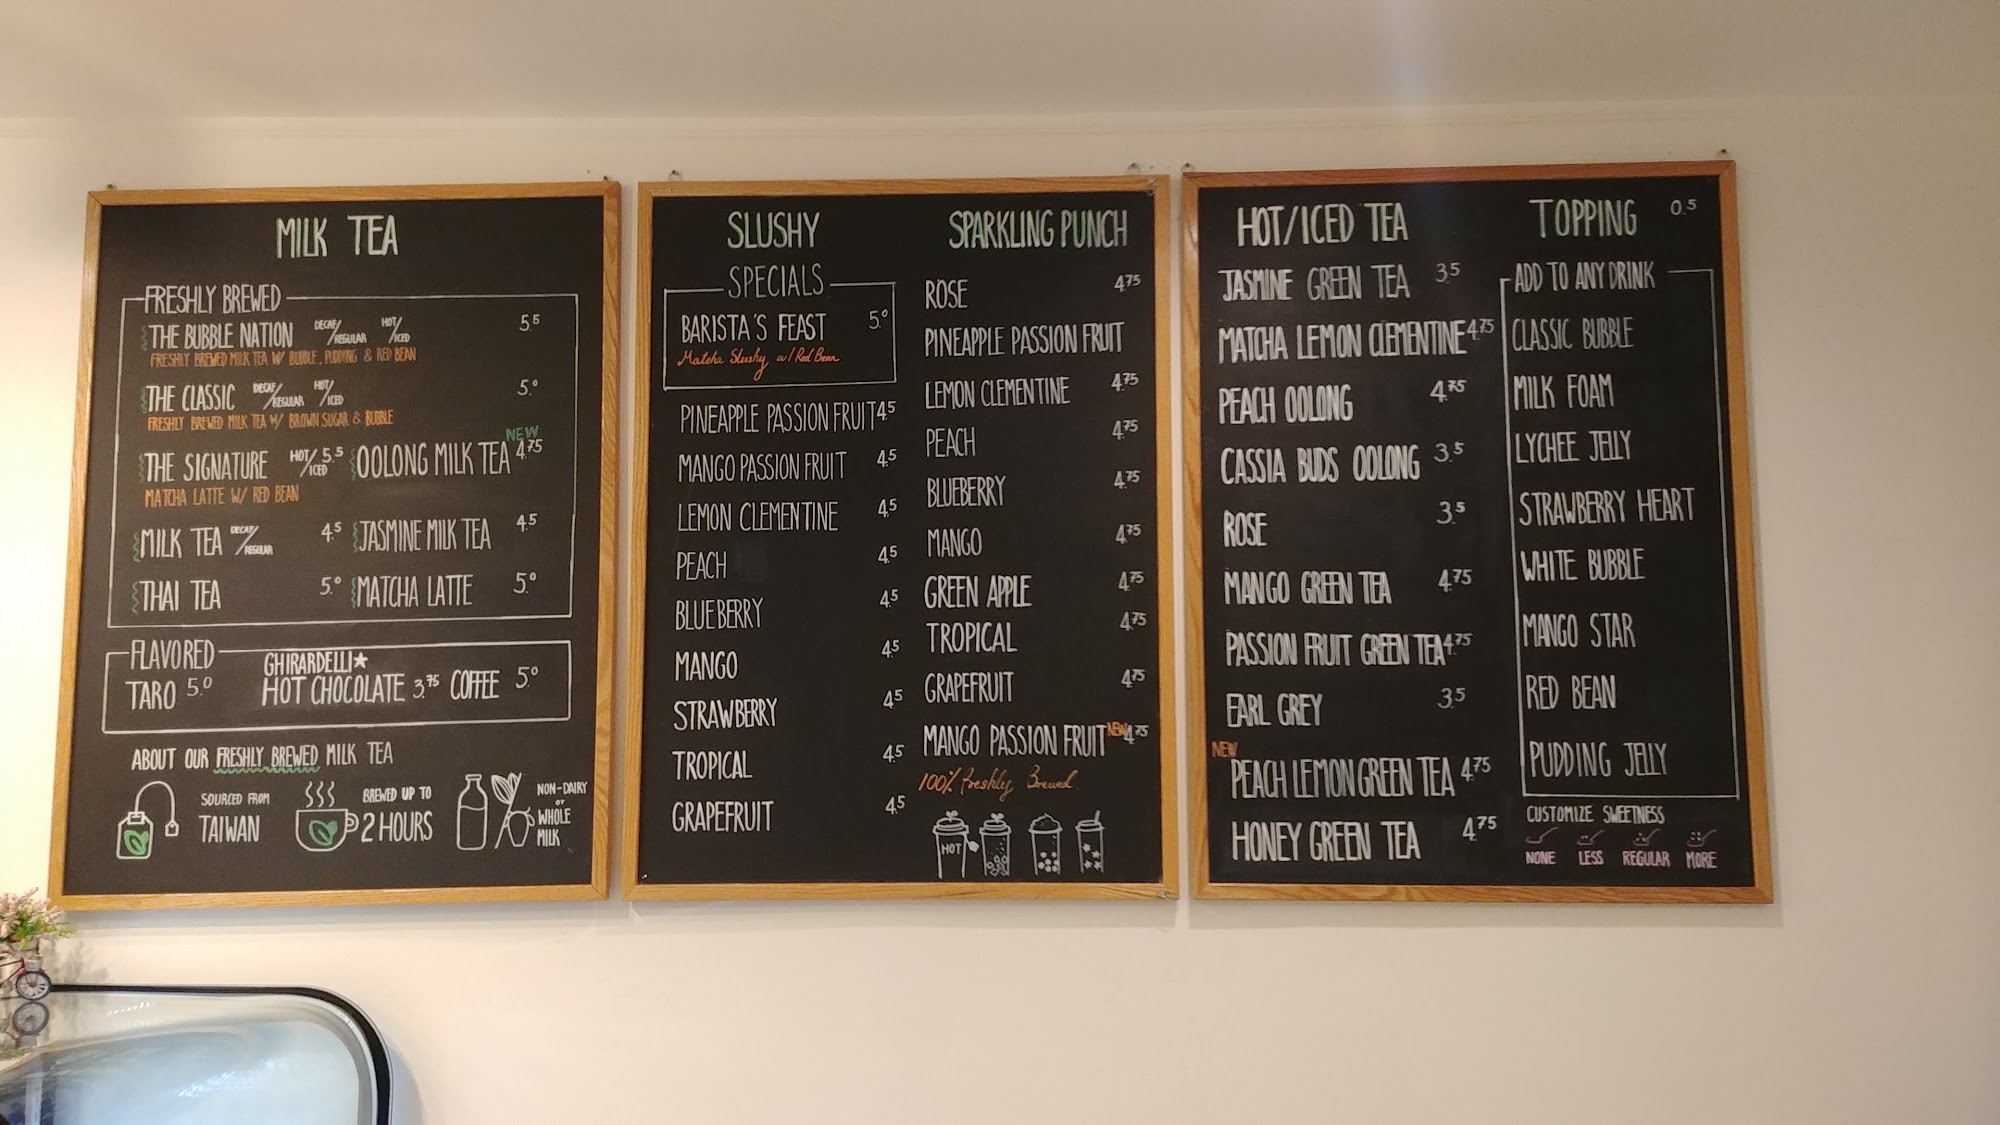 MILK TEA
FRESHLY BREWED
THE BUBBLE NATION DECAF/REGULAR HOT/ICED 5.5
FRESHLY BREWED MILK TEA W/ BUBBLE, PUDDING & RED BEAN
THE CLASSIC DECAF/REGULAR HOT/ICED 5.0
FRESHLY BREWED MILK TEA W/ BROWN SUGAR & BUBBLE
THE SIGNATURE HOT/ICED 5.5
MATCHA LATTE W/ RED BEAN
NEW
OOLONG MILK TEA 4.75
MILK TEA DECAF/REGULAR 4.5
JASMINE MILK TEA 4.5
THAI TEA 5.0
MATCHA LATTE 5.0
FLAVORED
TARO 5.0
GHIRARDELLI
HOT CHOCOLATE 3.75
COFFEE 5.0
ABOUT OUR FRESHLY BREWED MILK TEA
SOURCED FROM
TAIWAN
BREWED UP TO
2 HOURS
NON-DAIRY
or
WHOLE
MILK
SLUSHY
SPECIALS
BARISTA'S FEAST 5.0
Matcha Slushy w/ Red Bean
PINEAPPLE PASSION FRUIT 4.5
MANGO PASSION FRUIT 4.5
LEMON CLEMENTINE 4.5
PEACH 4.5
BLUEBERRY 4.5
MANGO 4.5
STRAWBERRY 4.5
TROPICAL 4.5
GRAPEFRUIT 4.5
SPARKLING PUNCH
ROSE 4.75
PINEAPPLE PASSION FRUIT
LEMON CLEMENTINE 4.75
PEACH 4.75
BLUEBERRY 4.75
MANGO 4.75
GREEN APPLE 4.75
TROPICAL 4.75
GRAPEFRUIT 4.75
MANGO PASSION FRUIT NEW 4.75
100% Freshly Brewed
HOT
HOT/ICED TEA
JASMINE GREEN TEA 3.5
MATCHA LEMON CLEMENTINE 4.75
PEACH OOLONG 4.75
CASSIA BUDS OOLONG 3.5
ROSE 3.5
MANGO GREEN TEA 4.75
PASSION FRUIT GREEN TEA 4.75
EARL GREY 3.5
NEW
PEACH LEMON GREEN TEA 4.75
HONEY GREEN TEA 4.75
TOPPING 0.5
ADD TO ANY DRINK
CLASSIC BUBBLE
MILK FOAM
LYCHEE JELLY
STRAWBERRY HEART
WHITE BUBBLE
MANGO STAR
RED BEAN
PUDDING JELLY
CUSTOMIZE SWEETNESS
NONE LESS REGULAR MORE